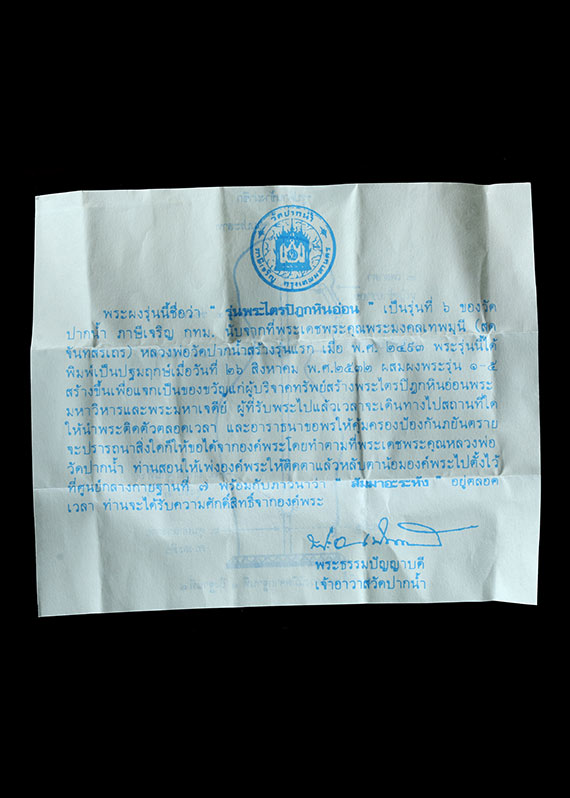 วัดปากน้ำ
ภาษีเจริญ กรุงเทพมหานคร
พระผงรุ่นนี้ชื่อว่า " รุ่นพระไตรปิฎกหินอ่อน " เป็นรุ่นที่ ๖ ของวัด
ปากน้ำ ภาษีเจริญ กทม. นับจากที่พระเดชพระคุณพระมงคลเทพมุนี (สด
จันทสรเถร) หลวงพ่อวัดปากน้ำสร้างรุ่นแรก เมื่อ พ.ศ. ๒๔๙๓ พระรุ่นนี้ได้
พิมพ์เป็นปฐมฤกษ์เมื่อวันที่ ๒๖ สิงหาคม (พ.ศ.๒๕๓๒ ผสมผงพระรุ่น ๑-๕
สร้างขึ้นเพื่อแจกเป็นของขวัญแก่ผู้บริจาคทรัพย์สร้างพระไตรปิฎกหินอ่อนพระ
มหาวิหารและพระมหาเจดีย์ ผู้ที่รับพระไปแล้วเวลาจะเดินทางไปสถานที่ใด
ให้นำพระติดตัวตลอดเวลา และอาราธนาขอพรให้คุ้มครองป้องกันภยันตราย
จะปรารถนาสิ่งใดก็ให้ขอได้จากองค์พระโดยทำตามที่พระเดชพระคุณหลวงพ่อ
วัดปากน้ำ ท่านสอนให้เพ่งองค์พระให้ติดตาแล้วหลับตาน้อมองค์พระไปตั้งไว้
ที่ศูนย์กลางกายฐานที่ ๗ พร้อมกับภาวนาว่า " สัมมาอะระหัง " อยู่ตลอด
เวลา ท่านจะได้รับความศักดิ์สิทธิ์จากองค์พระ
พระธรรมปัญญาบดี
เจ้าอาวาสวัดปากน้ำ